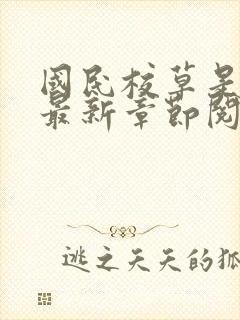 國民校草是
最新章節閱
逃之夭夭的狐